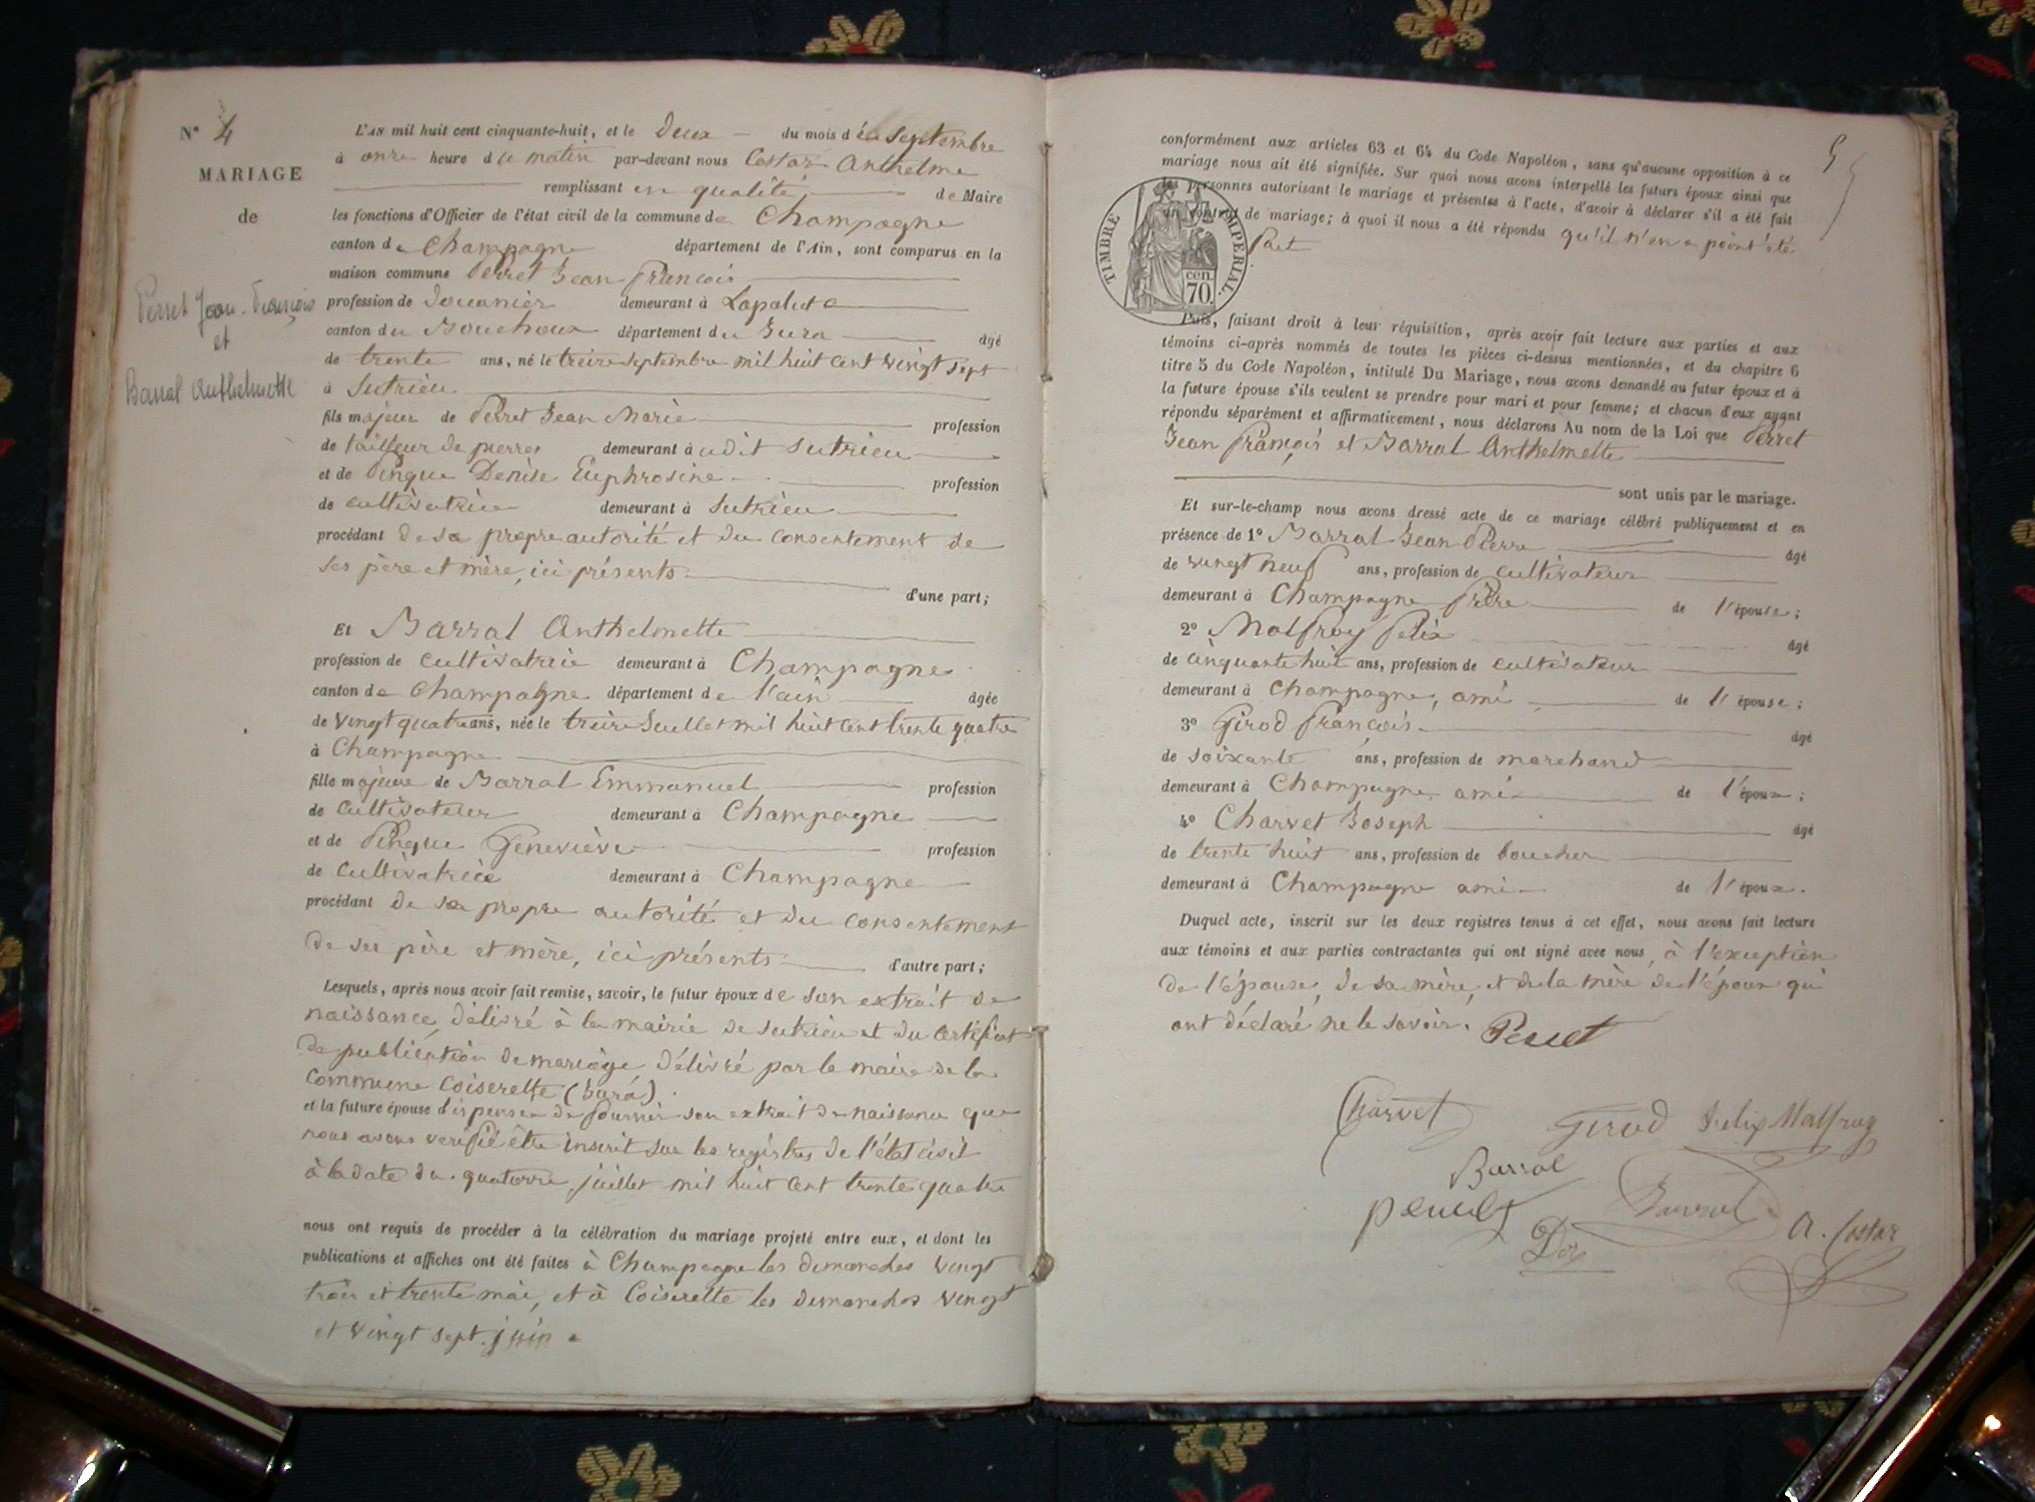 N° 4
MARIAGE
de
Perret Jean-François
et
Barral Anthelmette
L'AN mil huit cent cinquante-huit, et le Deux du mois de septembre
à onze heure du matin par-devant nous Costaz Anthelme
remplissant en qualité de Maire
les fonctions d'Officier de l'état civil de la commune de Champagne
canton de Champagne département de l'Ain, sont comparus en la
maison commune Perret Jean François
profession de Douanier demeurant à Lapalud
canton du Bouchoux département du Jura âgé
de trente ans, né le treize septembre mil huit cent vingt sept
à Sutrieu
fils majeur de Perret Jean Marie profession
de tailleur de pierres demeurant à udit Sutrieu
et de Pingue Denise Euphrosine profession
de cultivatrice demeurant à Sutrieu
procédant de sa propre autorité et du consentement de
ses père et mère, ici présents d'une part;
Et Barral Anthelmette
profession de cultivatrice demeurant à Champagne
canton de Champagne département de l'ain âgée
de vingt quatre ans, née le treize Juillet mil huit cent trente quatre
à Champagne
fille majeure de Barral Emmanuel profession
de cultivateur demeurant à Champagne
et de Pingue Geneviève profession
de cultivatrice demeurant à Champagne
procédant de sa propre autorité et du consentement
de ses père et mère, ici présents d'autre part;
Lesquels, après nous avoir fait remise, savoir, le futur époux de son extrait de
naissance, délivré à la mairie de Sutrieu et du certificat
de publication de mariage délivré par le maire de la
commune Coiserette (Jura).
et la future épouse dispensée de fournir son extrait de naissance que
nous avons vérifié être inscrit sur les registres de l'état civil
à la date du quatorze juillet mil huit cent trente quatre
nous ont requis de procéder à la célébration du mariage projeté entre eux, et dont les
publications et affiches ont été faites à Champagne les dimanches vingt
trois et trente mai, et à Coiserette les dimanches vingt
et vingt sept juin
5
conformément aux articles 63 et 64 du Code Napoléon, sans qu'aucune opposition à ce
mariage nous ait été signifiée. Sur quoi nous avons interpellé les futurs époux ainsi que
les personnes autorisant le mariage et présentes à l'acte, d'avoir à déclarer s'il a été fait
un contrat de mariage; à quoi il nous a été répondu qu'il n'en a point été
fait
TIMBRE IMPERIAL.
cen.
70.
Puis, faisant droit à leur réquisition, après avoir fait lecture aux parties et aux
témoins ci-après nommés de toutes les pièces ci-dessus mentionnées, et du chapitre 6
titre 5 du Code Napoléon, intitulé Du Mariage, nous avons demandé au futur époux et à
la future épouse s'ils veulent se prendre pour mari et pour femme; et chacun d'eux ayant
répondu séparément et affirmativement, nous déclarons Au nom de la Loi que Perret
Jean François et Barral Anthelmette
sont unis par le mariage.
Et sur-le-champ nous avons dressé acte de ce mariage célébré publiquement et en
présence de 1° Barral Jean Pierre âgé
de vingt neuf ans, profession de cultivateur
demeurant à Champagne frère de l'épouse;
2° Malfroy Félix âgé
de cinquante huit ans, profession de cultivateur
demeurant à Champagne, ami de l'épouse;
3° Girod François âgé
de soixante ans, profession de marchand
demeurant à Champagne ami de l'époux;
4° Charvet Joseph âgé
de trente huit ans, profession de boucher
demeurant à Champagne ami de l'époux.
Duquel acte, inscrit sur les deux registres tenus à cet effet, nous avons fait lecture
aux témoins et aux parties contractantes qui ont signé avec nous, à l'exception
de l'épouse, de sa mère, et de la mère de l'époux qui
ont déclaré ne le savoir. Perret
Charvet Girod Felix Malfroy
Barral
Perret Barral A. Costaz